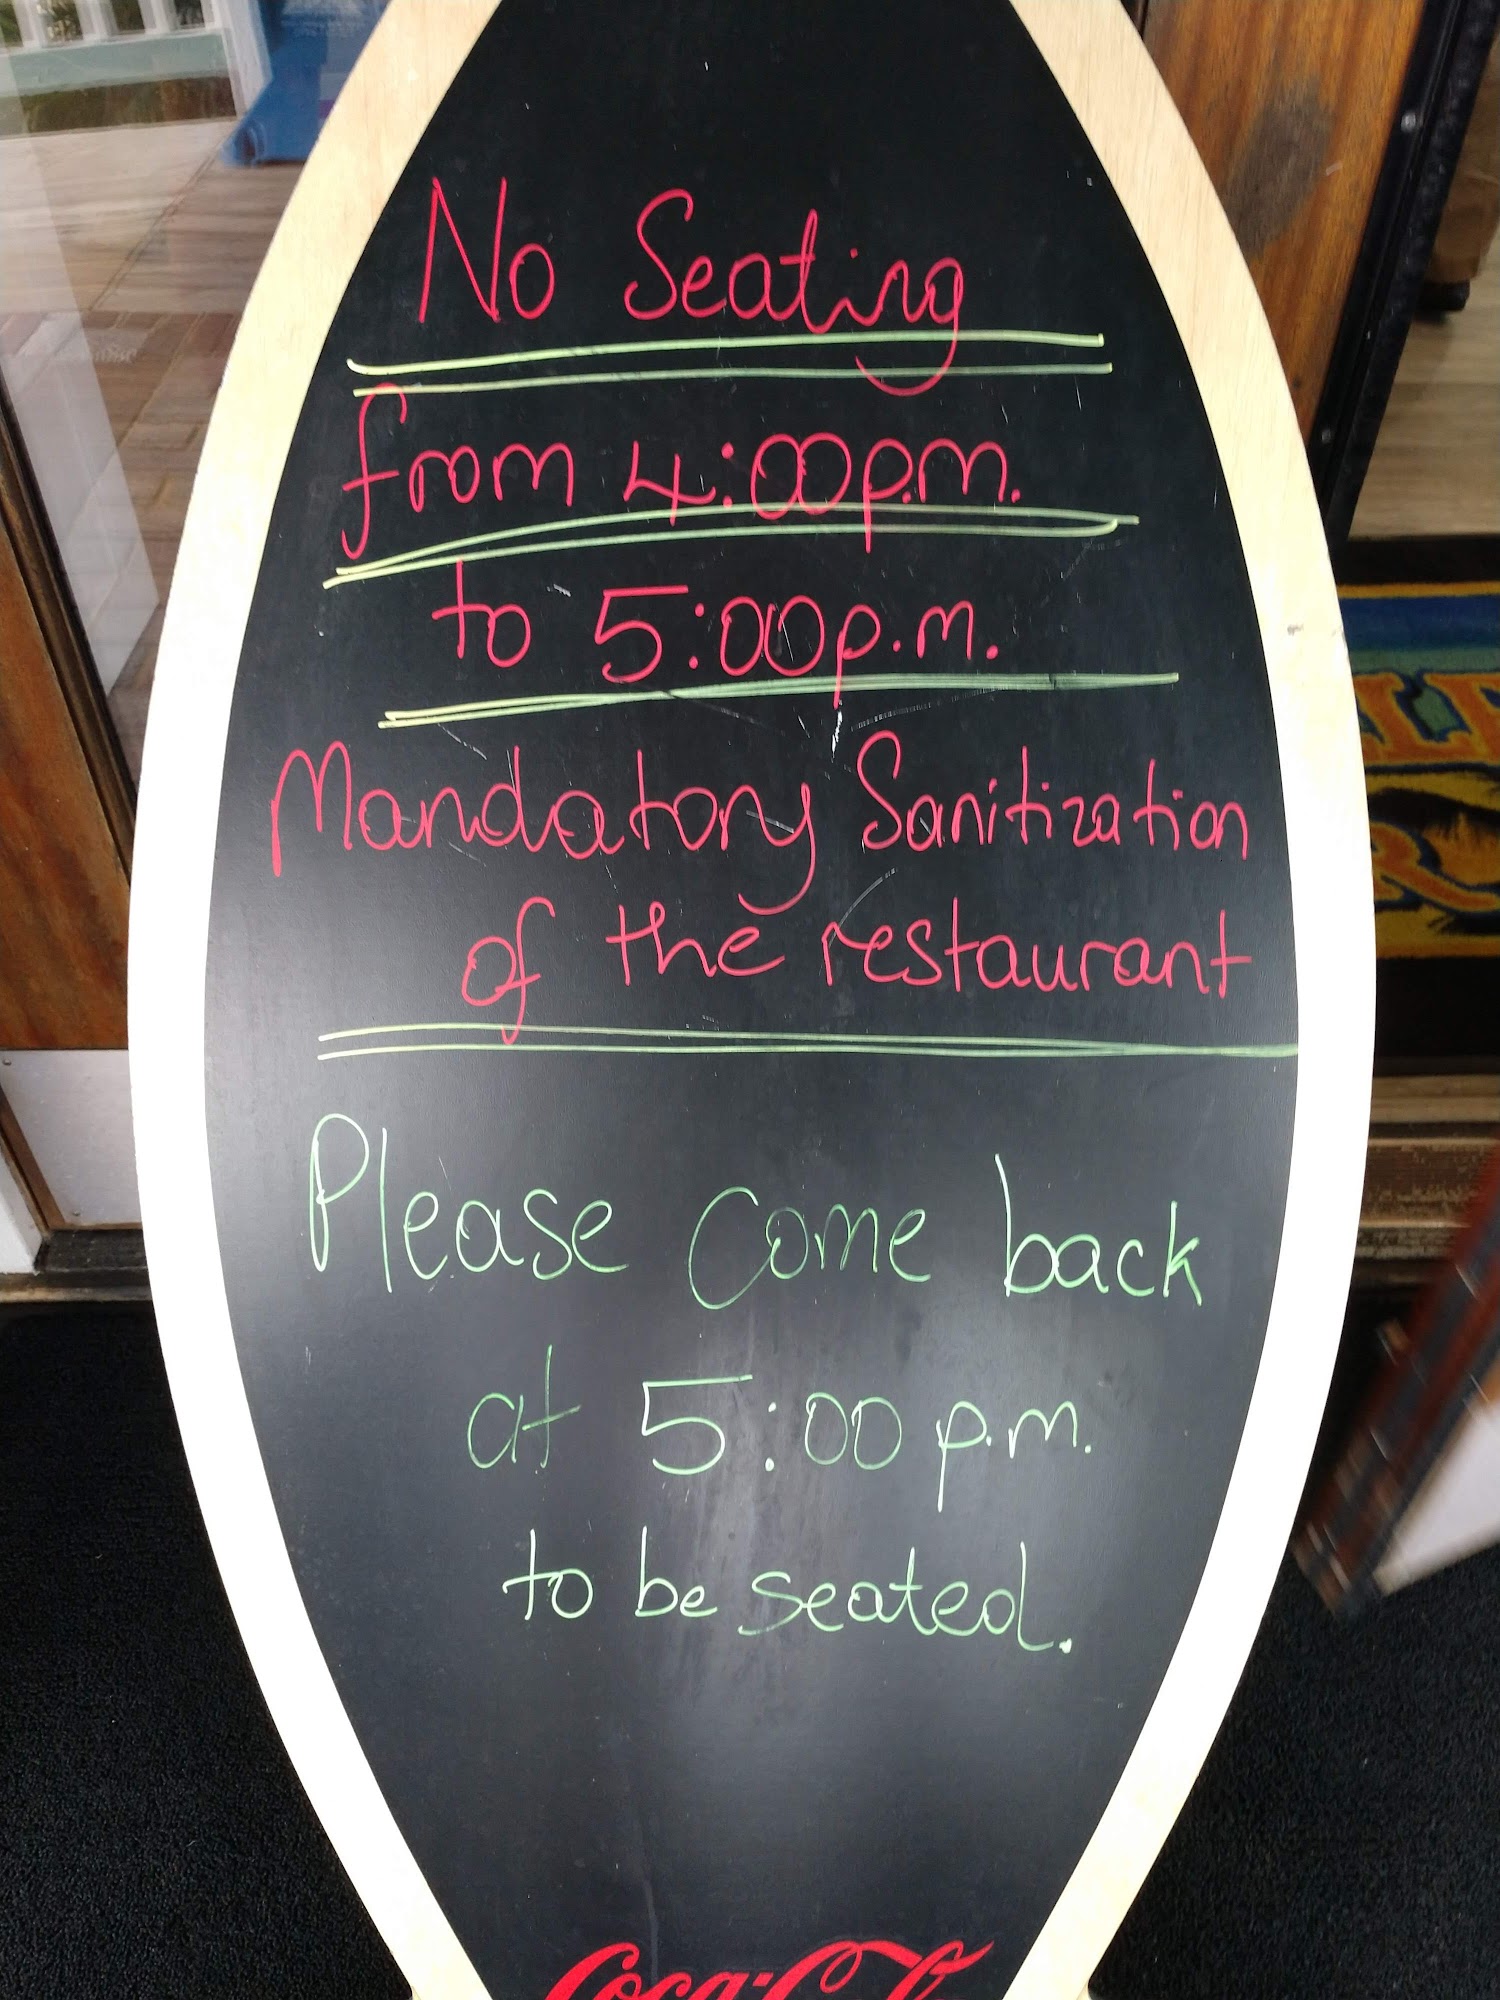 No Seating
from 4:00p.m.
to 5:00p.m.
Mandatory Sanitization
of the restaurant
Please come back
at 5:00 p.m.
to be seated.
Coca-Cola